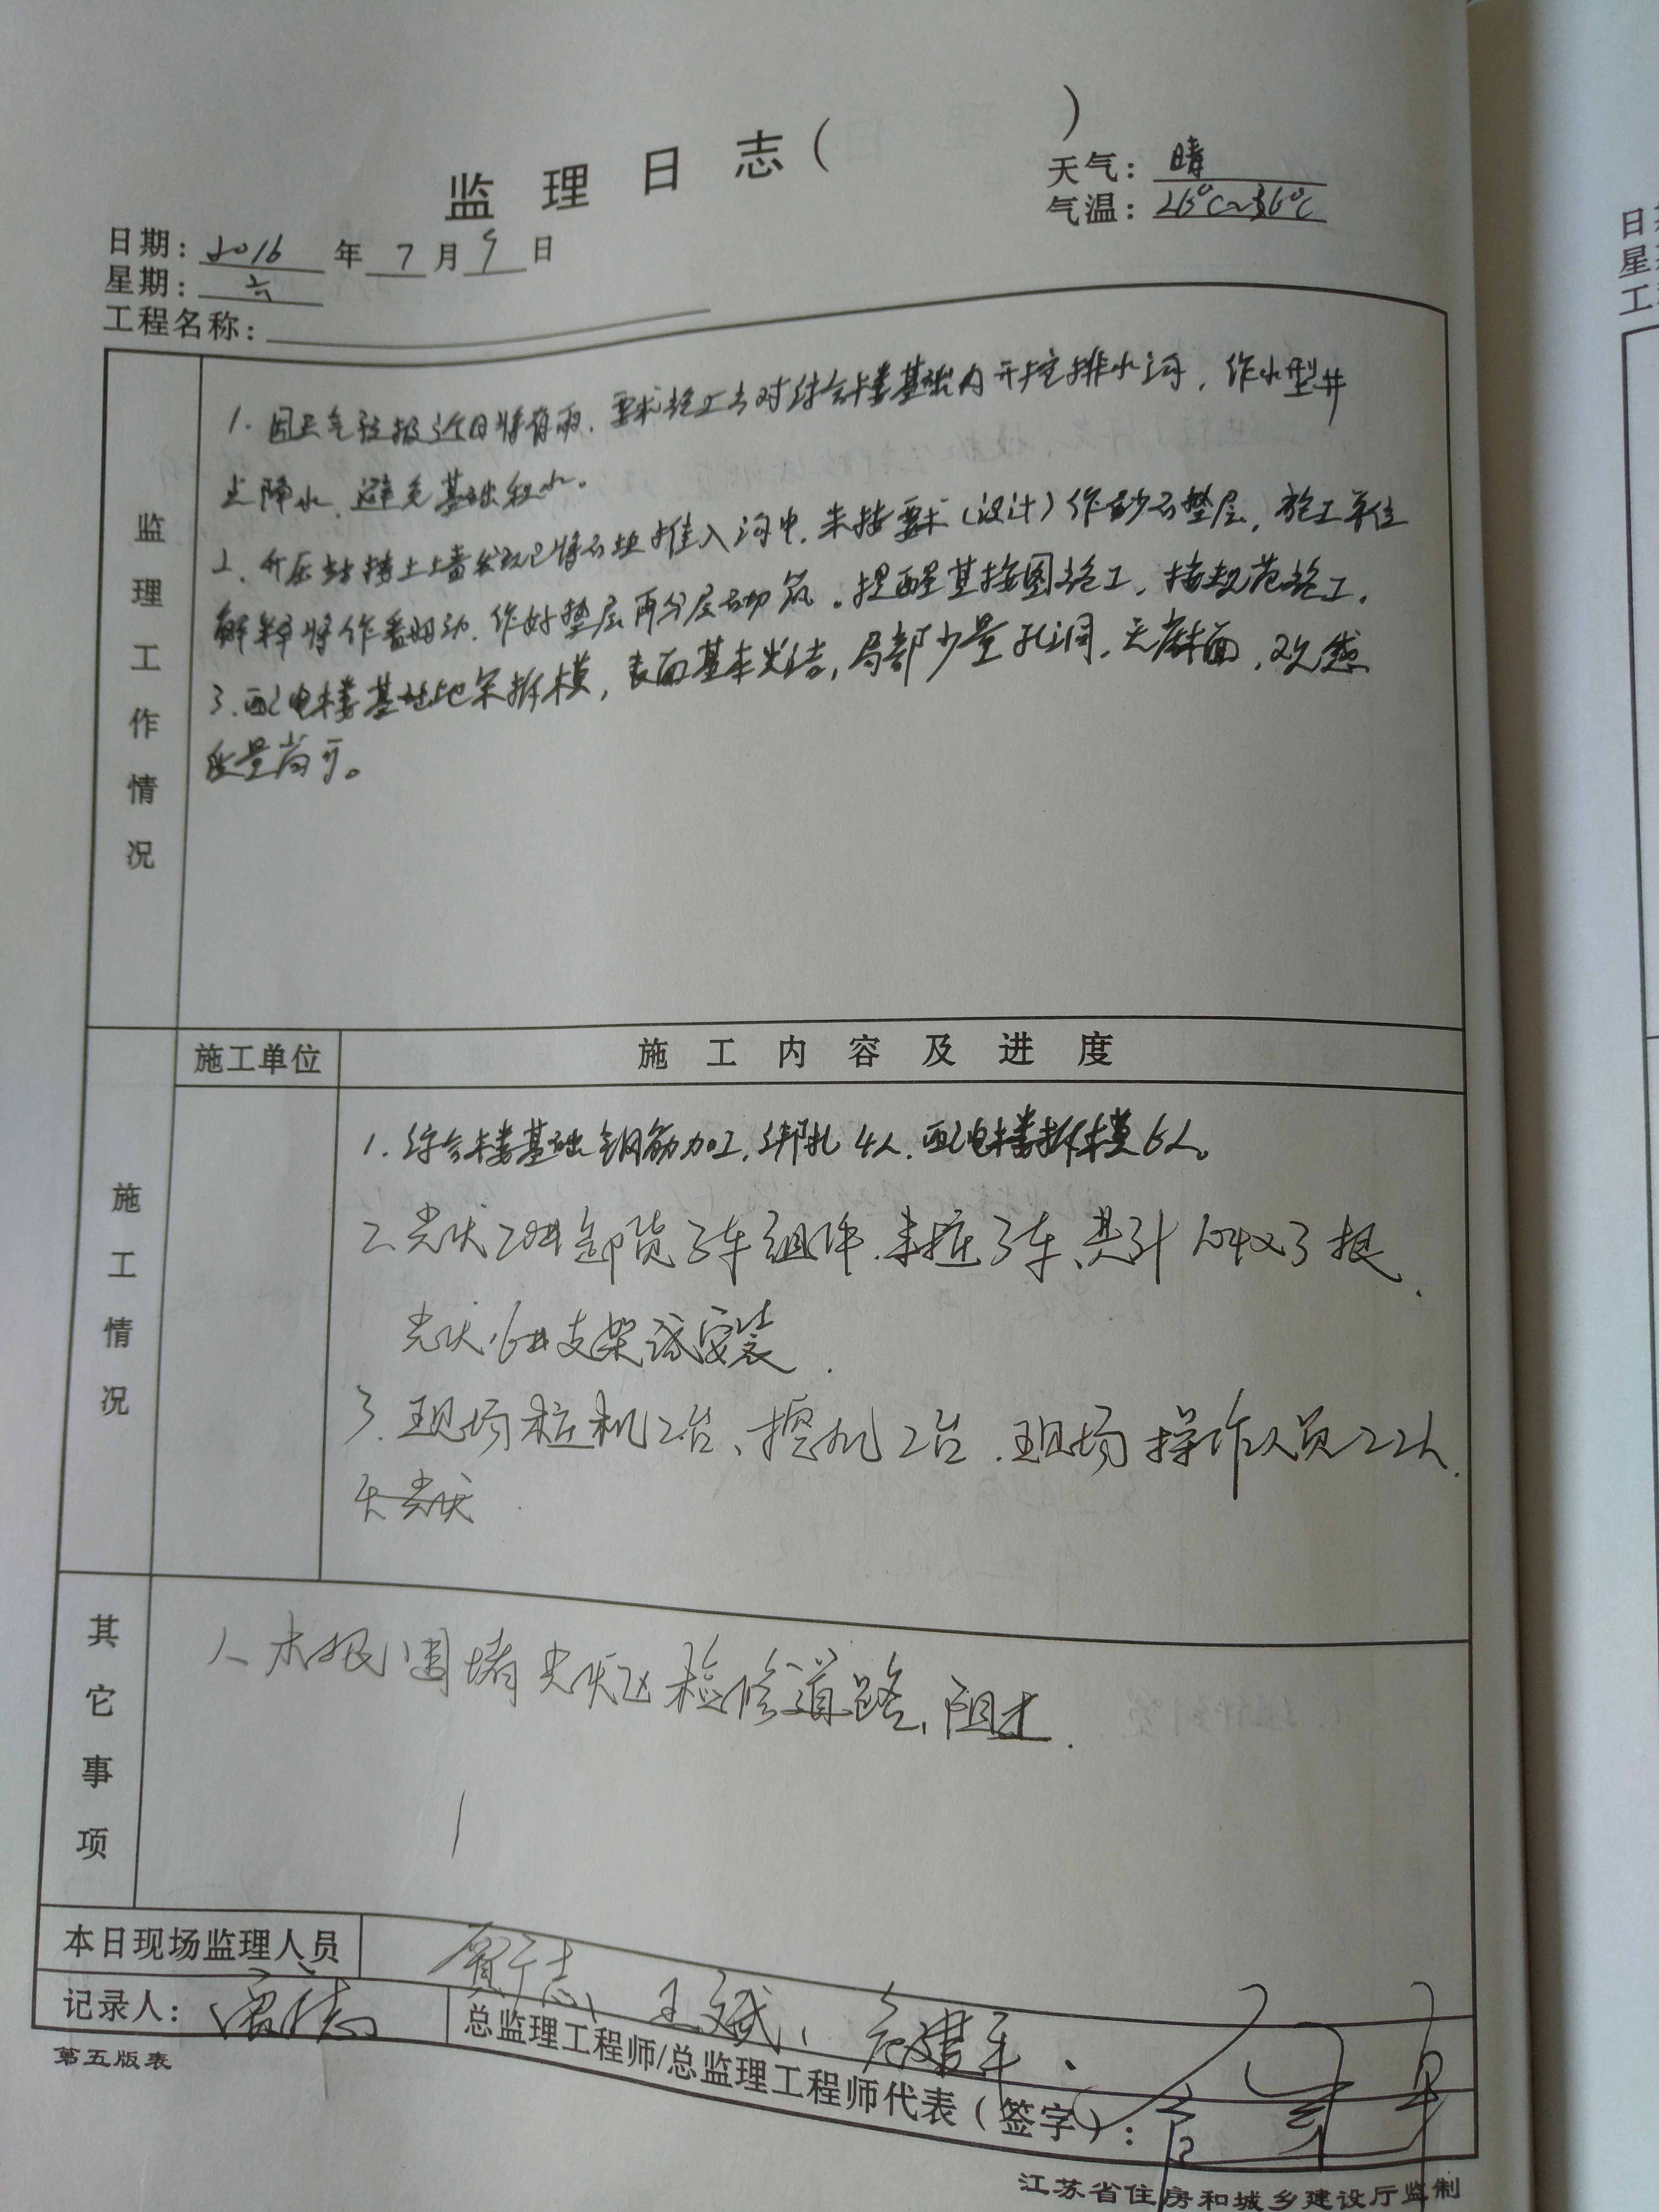 监理日志（ ）
天气：晴
气温：26°C~36°C
日期：2016年7月9日
星期：六
工程名称：
监理工作情况
1. 因天气预报近日将有雨，要求施工方对综合楼基础内开挖排水沟，作水型井
降水，避免基础积水。
2. 升压站挡土墙发现已将石块推入沟中，未按要求（设计）作砂石垫层，施工单位
解释将作番翻动，作好垫层再分层砌筑。提醒其按图施工，按规范施工。
3. 配电楼基础地梁拆模，表面基本光洁，局部少量孔洞，无麻面，观感
质量尚可。
施工单位
施工内容及进度
施工情况
1. 综合楼基础钢筋加工，绑扎4人，配电楼拆模6人。
2. 光伏20#卸货3车组件，未桩3车、共计 根.
光伏16#支架试安装.
3. 现场桩机2台、挖机2台.现场操作人员22人.
光伏
其它事项
1、 围堵光伏区检修道路，阻工.
本日现场监理人员
王斌、 建军、
记录人：
总监理工程师/总监理工程师代表（签字）：
第五版表
江苏省住房和城乡建设厅监制